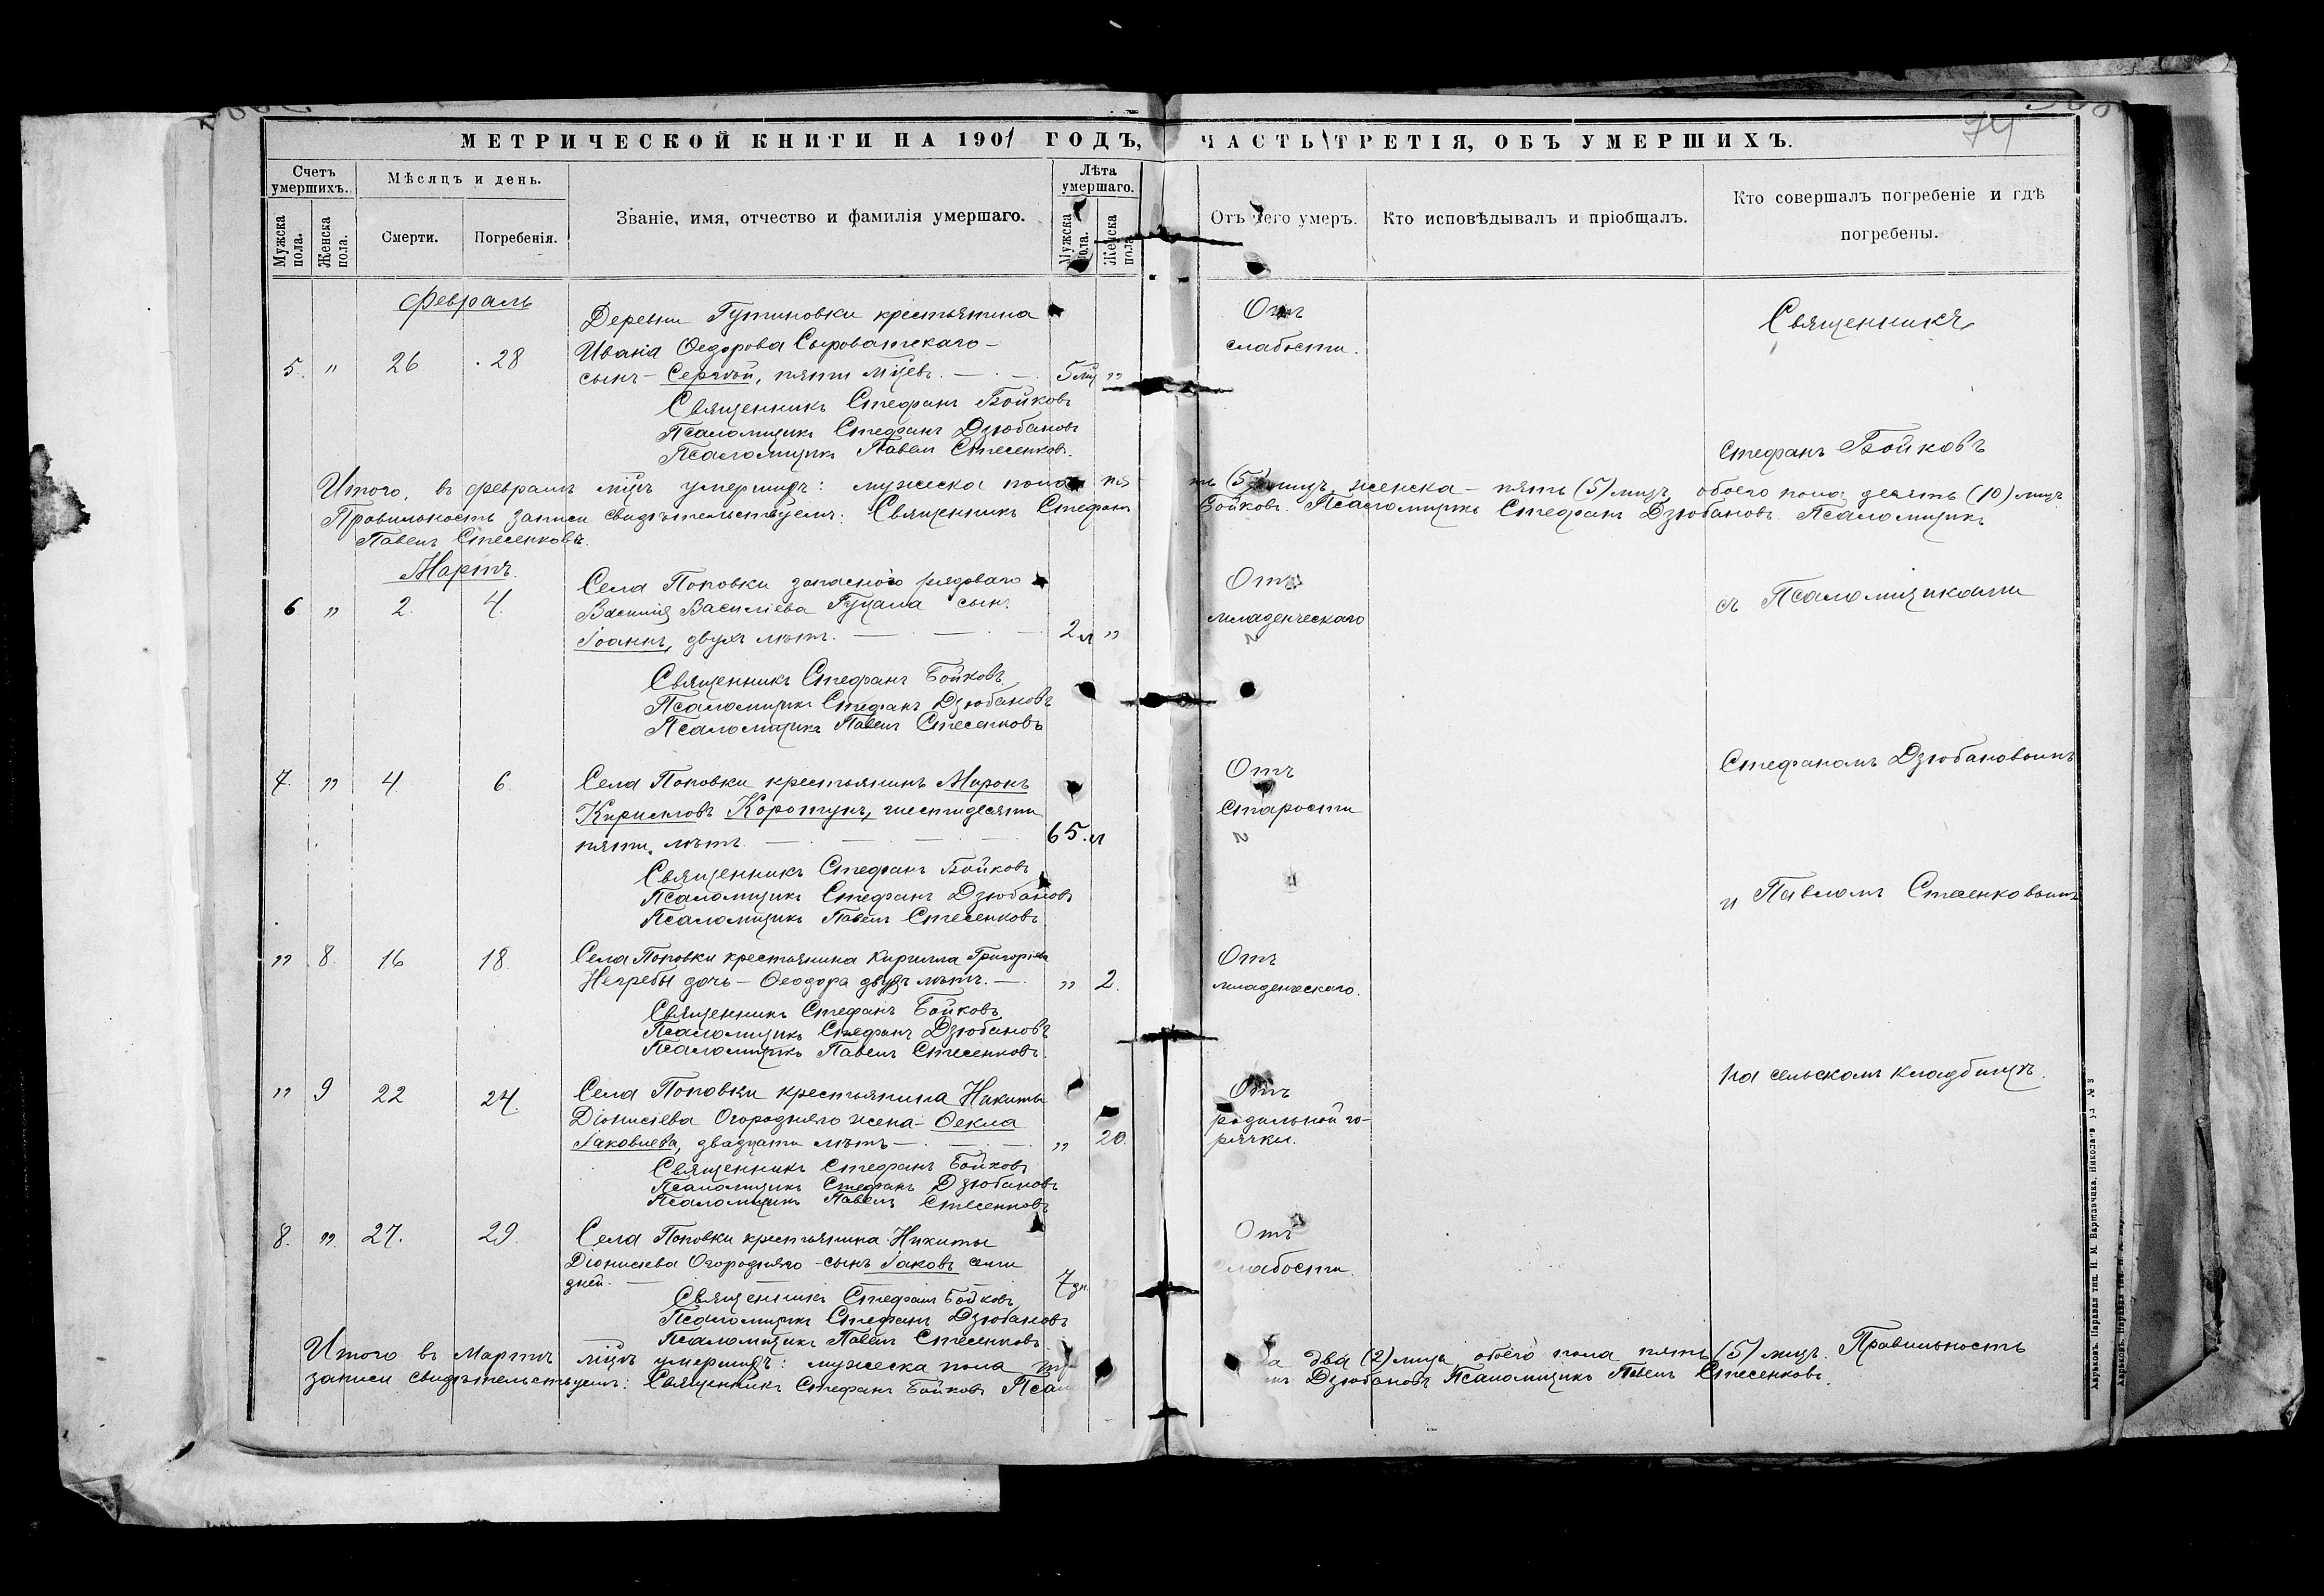 МЕТРИЧЕСКОЙ КНИГИ НА 1901 ГОДЪ,
Счетъ умершихъ.
Мѣсяцъ и день.
Званіе, имя, отчество и фамилія умершаго.
Лѣта умершаго.
Мужска пола.
Женска пола.
Смерти.
Погребенія.
Мужска пола.
Женска пола.
Февраль
Деревни Гутниовки крестьянина
Ивана Ѳедорова Сыроватскаго –
5. " 26. 28 сынъ – Сергѣй, пяти мцевъ. – . – 5 мц "
Священникъ Стефанъ Бойковъ
Псаломщикъ Стефанъ Дзюбановъ
Псаломщикъ Павелъ Стесенковъ.
Итого, въ февралѣ мцѣ умершихъ: мужеска пола пя
Правильность записи свидѣтельствуемъ: Священникъ Стефанъ
Павелъ Стесенковъ.
Мартъ.
Села Поповки запаснаго рядоваго
6 " 2. 4. Василія Василіева Гуцала сынъ
Іоаннъ, двухъ лѣтъ. – . – . – 2 л "
Священникъ Стефанъ Бойковъ
Псаломщикъ Стефанъ Дзюбановъ
Псаломщикъ Павелъ Стесенковъ
7. " 4. 6. Села Поповки крестьянинъ Миронъ
Кирилловъ Коротунъ, шестидесяти
пяти лѣтъ. – . – . – 65. л
Священникъ Стефанъ Бойковъ
Псаломщикъ Стефанъ Дзюбановъ
Псаломщикъ Павелъ Стесенковъ
" 8. 16 18. Села Поповки крестьянина Кирилла Григоріева
Негребы дочь – Ѳеодора двухъ лѣтъ. – . " 2.
Священникъ Стефанъ Бойковъ
Псаломщикъ Стефанъ Дзюбановъ
Псаломщикъ Павелъ Стесенковъ.
" 9 22 24. Села Поповки крестьянина Никиты
Діонисіева Огородняго жена – Ѳекла
Іаковлева, двадцати лѣтъ – . – . – " 20.
Священникъ Стефанъ Бойковъ
Псаломщикъ Стефанъ Дзюбановъ
Псаломщикъ Павелъ Стесенковъ
8. " 27. 29. Села Поповки крестьянина Никиты
Діонисіева Огородняго – сынъ Іаковъ семи
дней. – 7 дн.
Священникъ Стефанъ Бойковъ
Псаломщикъ Стефанъ Дзюбановъ
Псаломщикъ Павелъ Стесенковъ
Итого въ Мартѣ мцѣ умершихъ: мужеска пола
записи свидѣтельствуемъ: Священникъ Стефанъ Бойковъ Псал
74
ЧАСТЬ ТРЕТІЯ, ОБЪ УМЕРШИХЪ.
Отъ чего умеръ.
Кто исповѣдывалъ и пріобщалъ.
Кто совершалъ погребеніе и гдѣ
погребены.
Отъ
слабости.
Священникъ
Стефанъ Бойковъ
ть (5) лицъ, женска – пять (5) лицъ, обоего пола десять (10) лицъ
Бойковъ. Псаломщикъ Стефанъ Дзюбановъ. Псаломщикъ
Отъ
младенческаго
съ Псаломщиками
Стефаномъ Дзюбановымъ
Отъ
старости
и Павломъ Стесенковымъ
Отъ
младенческаго.
на сельскомъ кладбищѣ.
Отъ
родильной го-
рячки.
Отъ
слабости.
два (2) лица обоего пола пять (5) лицъ. Правильность
Дзюбановъ Псаломщикъ Павелъ Стесенковъ.